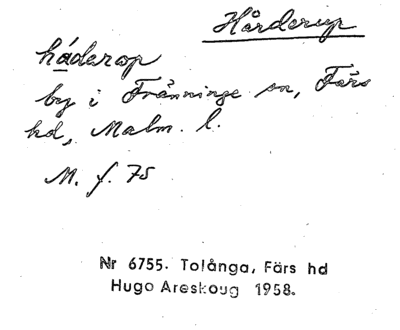 Hårderup
håderop
by i Frånninge sn, Färs
hd, Malm. l.
M. f. 75
Nr 6755. Tolånga, Färs hd
Hugo Areskoug 1958.